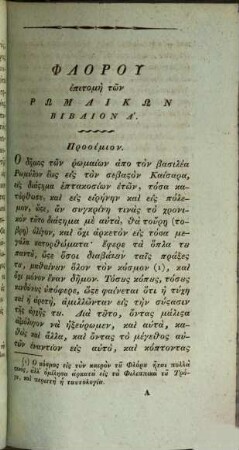 ΦΛΩΡΟΥ
ἐπιτομὴ τῶν
ΡΩΜΑΙΚΩΝ
ΒΙΒΛΙΟΝ Α΄.
Προοίμιον.
Ὁ δῆμος τῶν ῥωμαίων ἀπὸ τὸν βασιλέα
Ῥωμύλον ἕως εἰς τὸν σεβαςὸν Καίσαρα,
εἰς διάςημα ἑπτακοσίων ἐτῶν, τόσα κα-
τώρθωσε, καὶ εἰς εἰρήνην καὶ εἰς πόλε-
μον, ὥςε, ἂν συγκρίνῃ τινὰς τὸ χρονι-
κὸν τȣ͂το διάςημα μὲ αὐτὰ, θὰ
ὀλίγον, καὶ ὄχι ἀρκετὸν εἰς τόσα με-
γάλα κατορθώματα· Ἔφερε τὰ ὅπλα τȣ
παντȣ͂, ὥςε ὅσοι διαβάζȣν ταῖς πράξες
τȣ, μαθαίνȣν ὅλον τὸν κόσμον (1), καὶ
ὄχι μόνον ἕναν δῆμον. Τόσȣς κόπȣς, τόσȣς
κινδύνȣς ὑπόφερε, ὥςε φαίνεται ὅτι ἡ τύχη
καὶ ἡ ἀρετὴ, ἁμιλλῶνταν εἰς τὴν σύςασιν
τῆς ἀρχῆς τȣ. Διὰ τȣ͂το, ὄντας μάλιςα
ἀξιόλογον νὰ ἠξεύρωμεν, καὶ αὐτὰ, κα-
θὼς καὶ ἄλλα, καὶ ὄντας τὸ μέγεθος αὐ-
τῶν ἐναντίον εἰς αὐτὸ, καὶ κόπτοντας
(1) Ὁ κόσμος εἰς τὸν καιρὸν τȣ͂ Φλώρȣ
εἰς τȣ͂ Φιλίππȣ
καὶ ἡ ταυτολογία.
Α